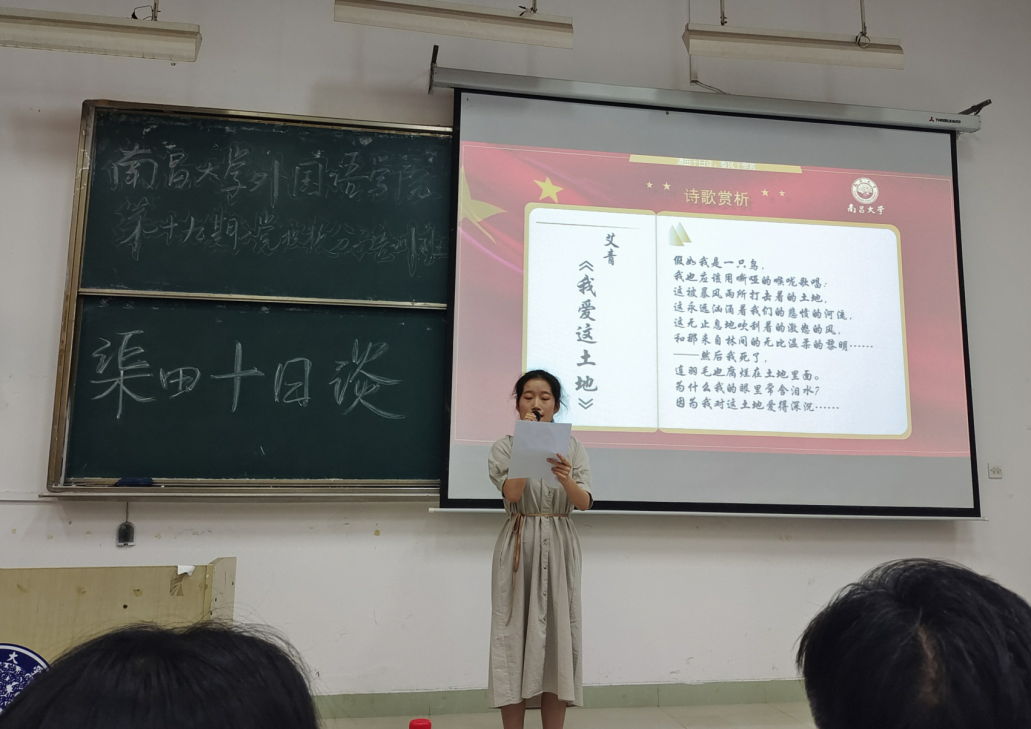 南昌大学外国语学院
第十九期入党积极分子培训班
渠田十日谈
诗歌赏析
南昌大学
艾青
《我爱这土地》
假如我是一只鸟，
我也应该用嘶哑的喉咙歌唱：
这被暴风雨所打击着的土地，
这永远汹涌着我们的悲愤的河流，
这无止息地吹刮着的激怒的风，
和那来自林间的无比温柔的黎明……
——然后我死了，
连羽毛也腐烂在土地里面。
为什么我的眼里常含泪水？
因为我对这土地爱得深沉……
大